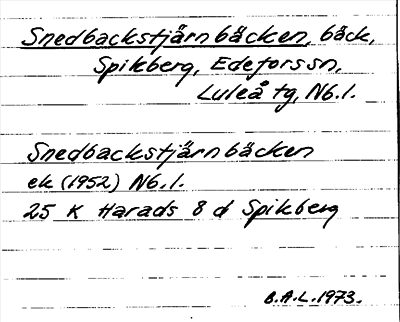 Snedbackstjärnbäcken, bäck,
Spikberg, Edeforssn,
Luleå tg, Nb.l.
Snedbackstjärnbäcken
ek (1952) Nb.l.
25 K Harads 8 d Spikberg
B.A.L. 1973.